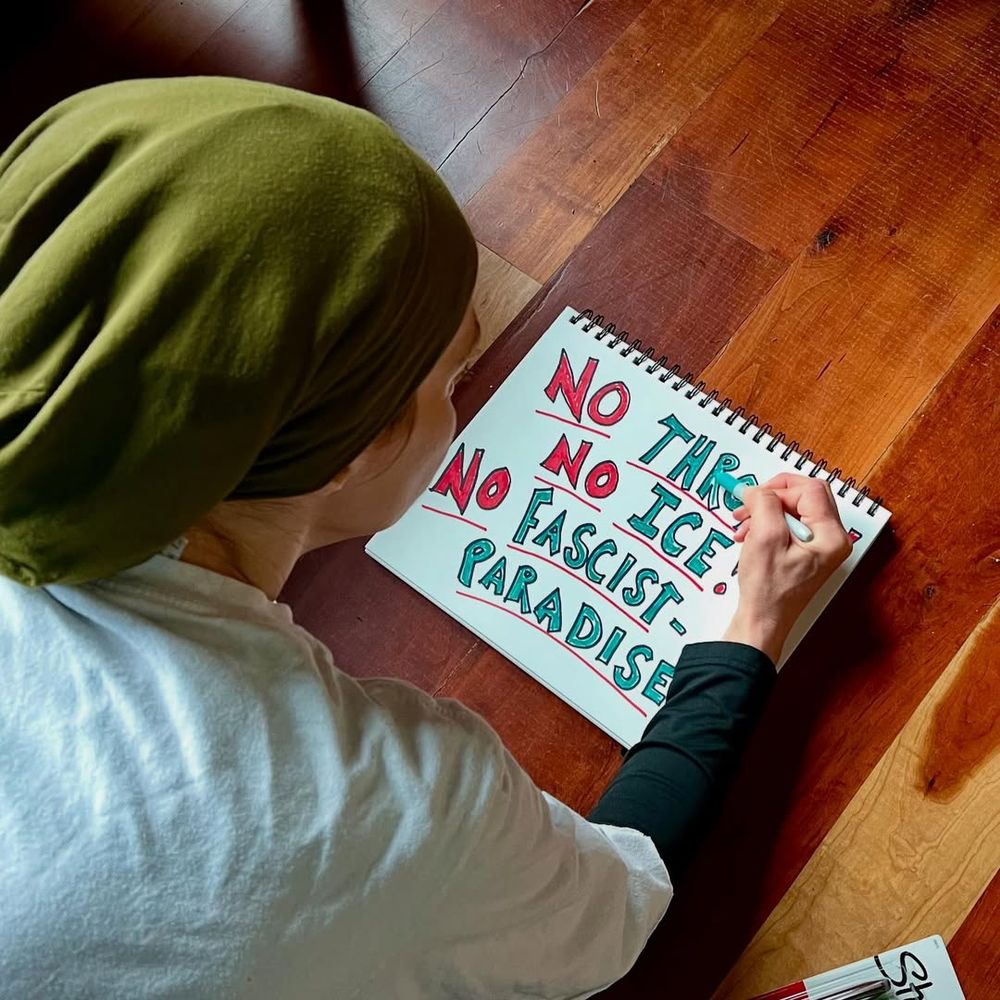 NO
NO ICE.
NO FASCIST-
PARADISE